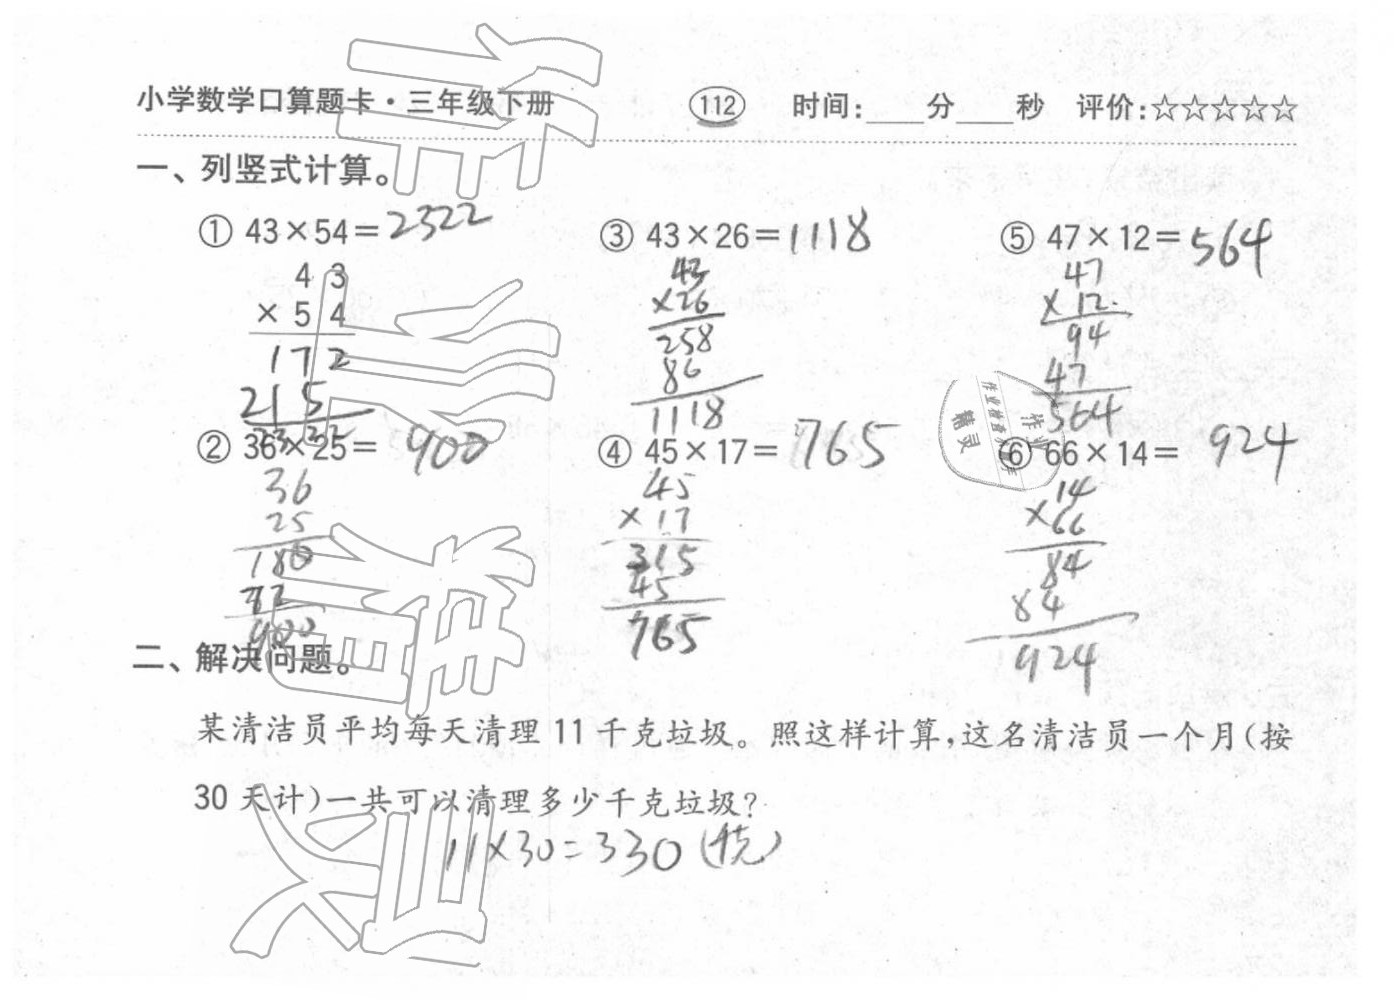 小学数学口算题卡·三年级下册 112 时间:____分____秒 评价:☆☆☆☆☆
一、列竖式计算。
① 43×54=2322
4 3
× 5 4
172
215
③ 43×26=1118
43
×26
258
86
1118
⑤ 47×12=564
47
×12
94
47
564
② 36×25=900
36
25
180
900
④ 45×17=765
45
×17
315
45
765
⑥ 66×14=924
14
×66
84
84
924
二、解决问题。
某清洁员平均每天清理11千克垃圾。照这样计算,这名清洁员一个月(按
30天计)一共可以清理多少千克垃圾?
11×30=330(千克)
作业精灵
作业
精灵
作业检查小助手